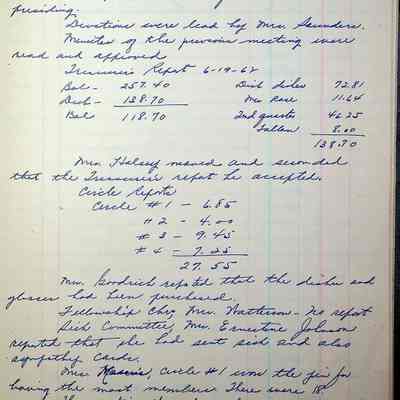 presiding.
Devotions were lead by Mrs. Saunders.
Minutes of the previous meeting were
read and approved
Treasurer's Report 6-19-62
Bal - 257.40 Dish dolex 72.81
Disb - 138.70 Mrs Rase 11.64
Bal 118.70 2nd quarter 46.25
Fallen 8.00
138.70
Mrs. Halsey moved and seconded
that the Treasurer's report be accepted.
Circle Reports
Circle #1 - 6.85
#2 - 4.00
#3 - 9.45
#4 - 7.25
27.55
Mrs. Goodrich reported that the dishes and
glasses had been purchased.
Fellowship Chr, Mrs. Watterson - no report
Sick Committee, Mrs. Ernestine Johnson
reported that she had sent sick and also
sympathy cards.
Mrs. circle #1 won the pin for
having the most members. There were 18.